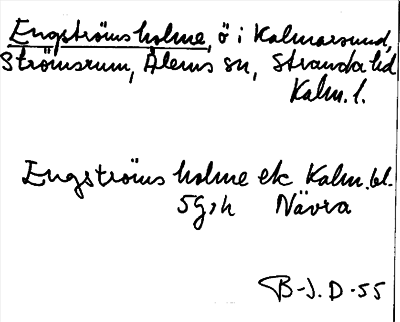 Engströms holme, ö i Kalmarsund,
Strömsrum, Ålems sn, Stranda hd
Kalm. l.
Engströms holme ek Kalm. bl.
5G, h Nävra
B-J. D-55